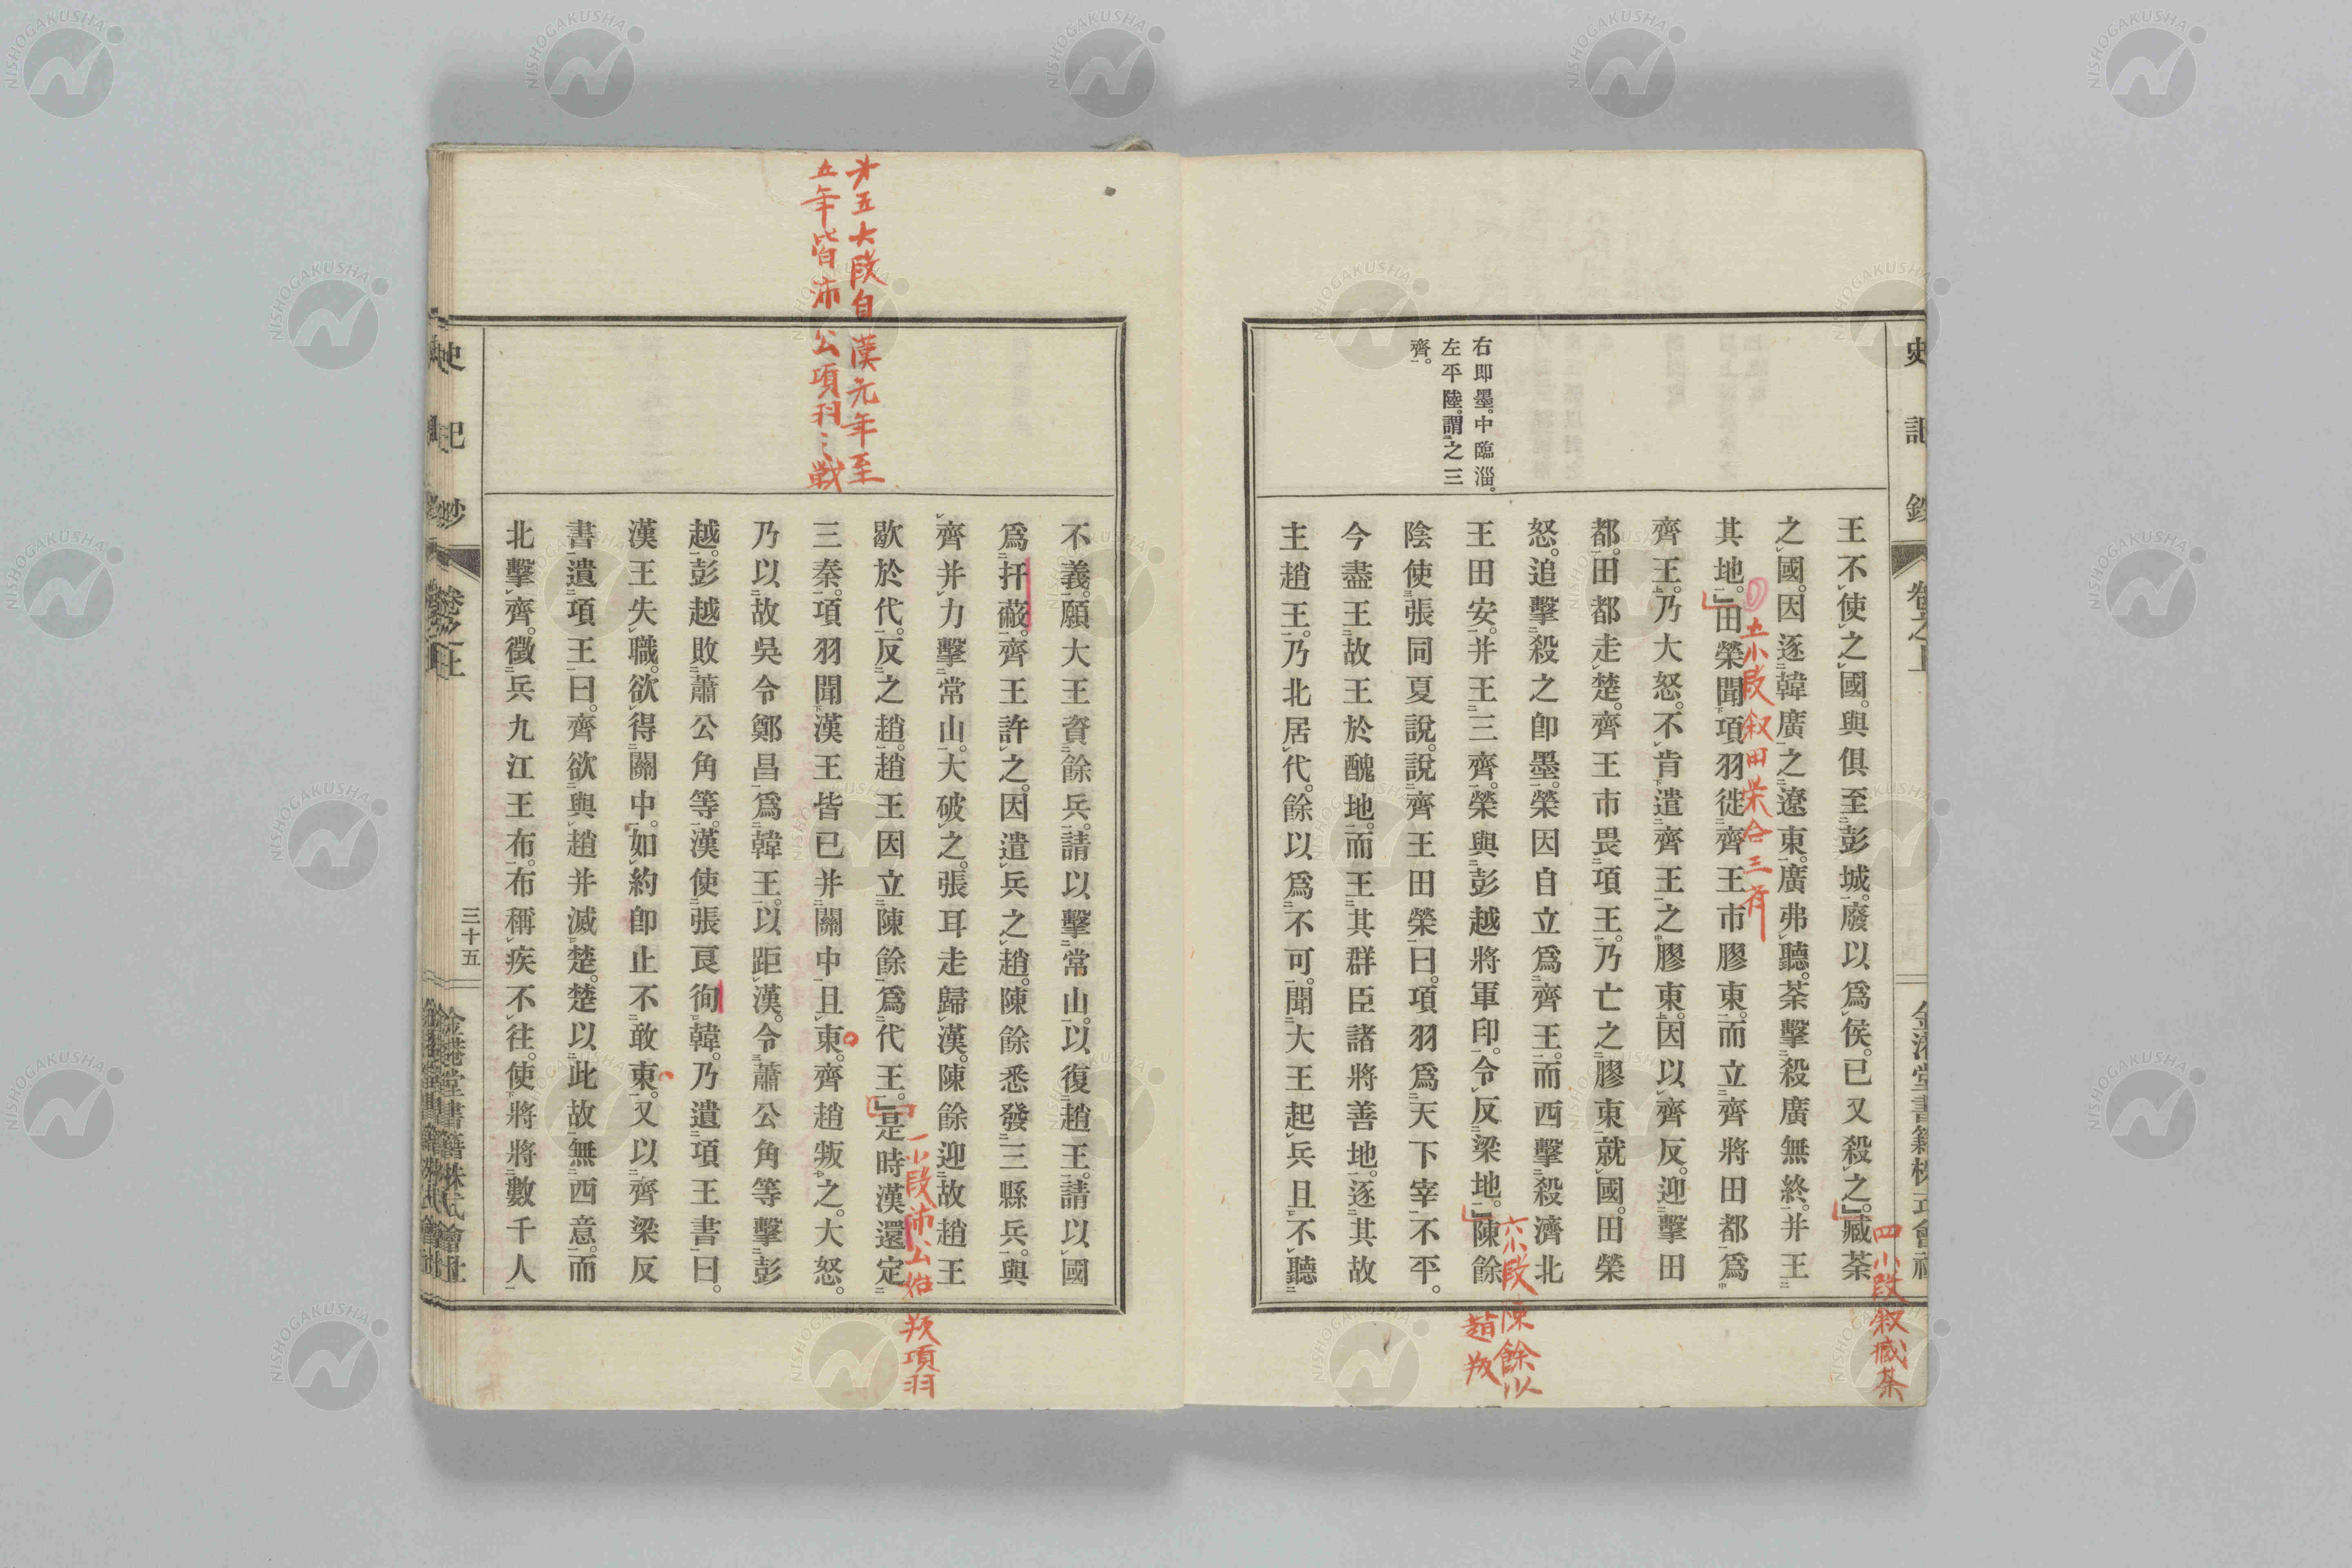 史記鈔 卷之上 金港堂書籍株式會社
右即墨。中臨淄。
左平陸。謂之三
齊。
王不使之國。與俱至彭城。廢以爲侯。已又殺之。」臧荼
之國。因逐韓廣之遼東。廣弗聽。荼擊殺廣無終。并王
其地。」田榮聞項羽徙齊王市膠東。而立齊將田都爲
齊王。乃大怒。不肯遣齊王之膠東。因以齊反。迎擊田
都。田都走楚。齊王市畏項王。乃亡之膠東就國。田榮
怒。追擊殺之卽墨。榮因自立爲齊王。而西擊殺濟北
王田安。并王三齊。榮與彭越將軍印。令反梁地。」陳餘
陰使張同夏說。說齊王田榮曰。項羽爲天下宰不平。
今盡王故王於醜地。而王其群臣諸將善地。逐其故
主趙王。乃北居代。餘以爲不可。聞大王起兵且不聽
四小段叙臧荼
五小段叙田榮合三齊
六小段陳餘以
趙叛
不義。願大王資餘兵。請以擊常山。以復趙王。請以國
爲扞蔽。齊王許之。因遣兵之趙。陳餘悉發三縣兵。與
齊并力擊常山。大破之。張耳走歸漢。陳餘迎故趙王
歇於代。反之趙。趙王因立陳餘爲代王。」是時漢還定
三秦。項羽聞漢王皆已并關中且東。齊趙叛之。大怒。
乃以故吳令鄭昌爲韓王。以距漢。令蕭公角等擊彭
越。彭越敗蕭公角等。漢使張良徇韓。乃遺項王書曰。
漢王失職。欲得關中。如約卽止不敢東。又以齊梁反
書遺項王曰。齊欲與趙并滅楚。楚以此故無西意。而
北擊齊。徵兵九江王布。布稱疾不往。使將將數千人
才五大段自漢元年至
五年皆沛公項羽之戰
一小段沛公始叛項羽
史記鈔 卷之上 三十五 金港堂書籍株式會社